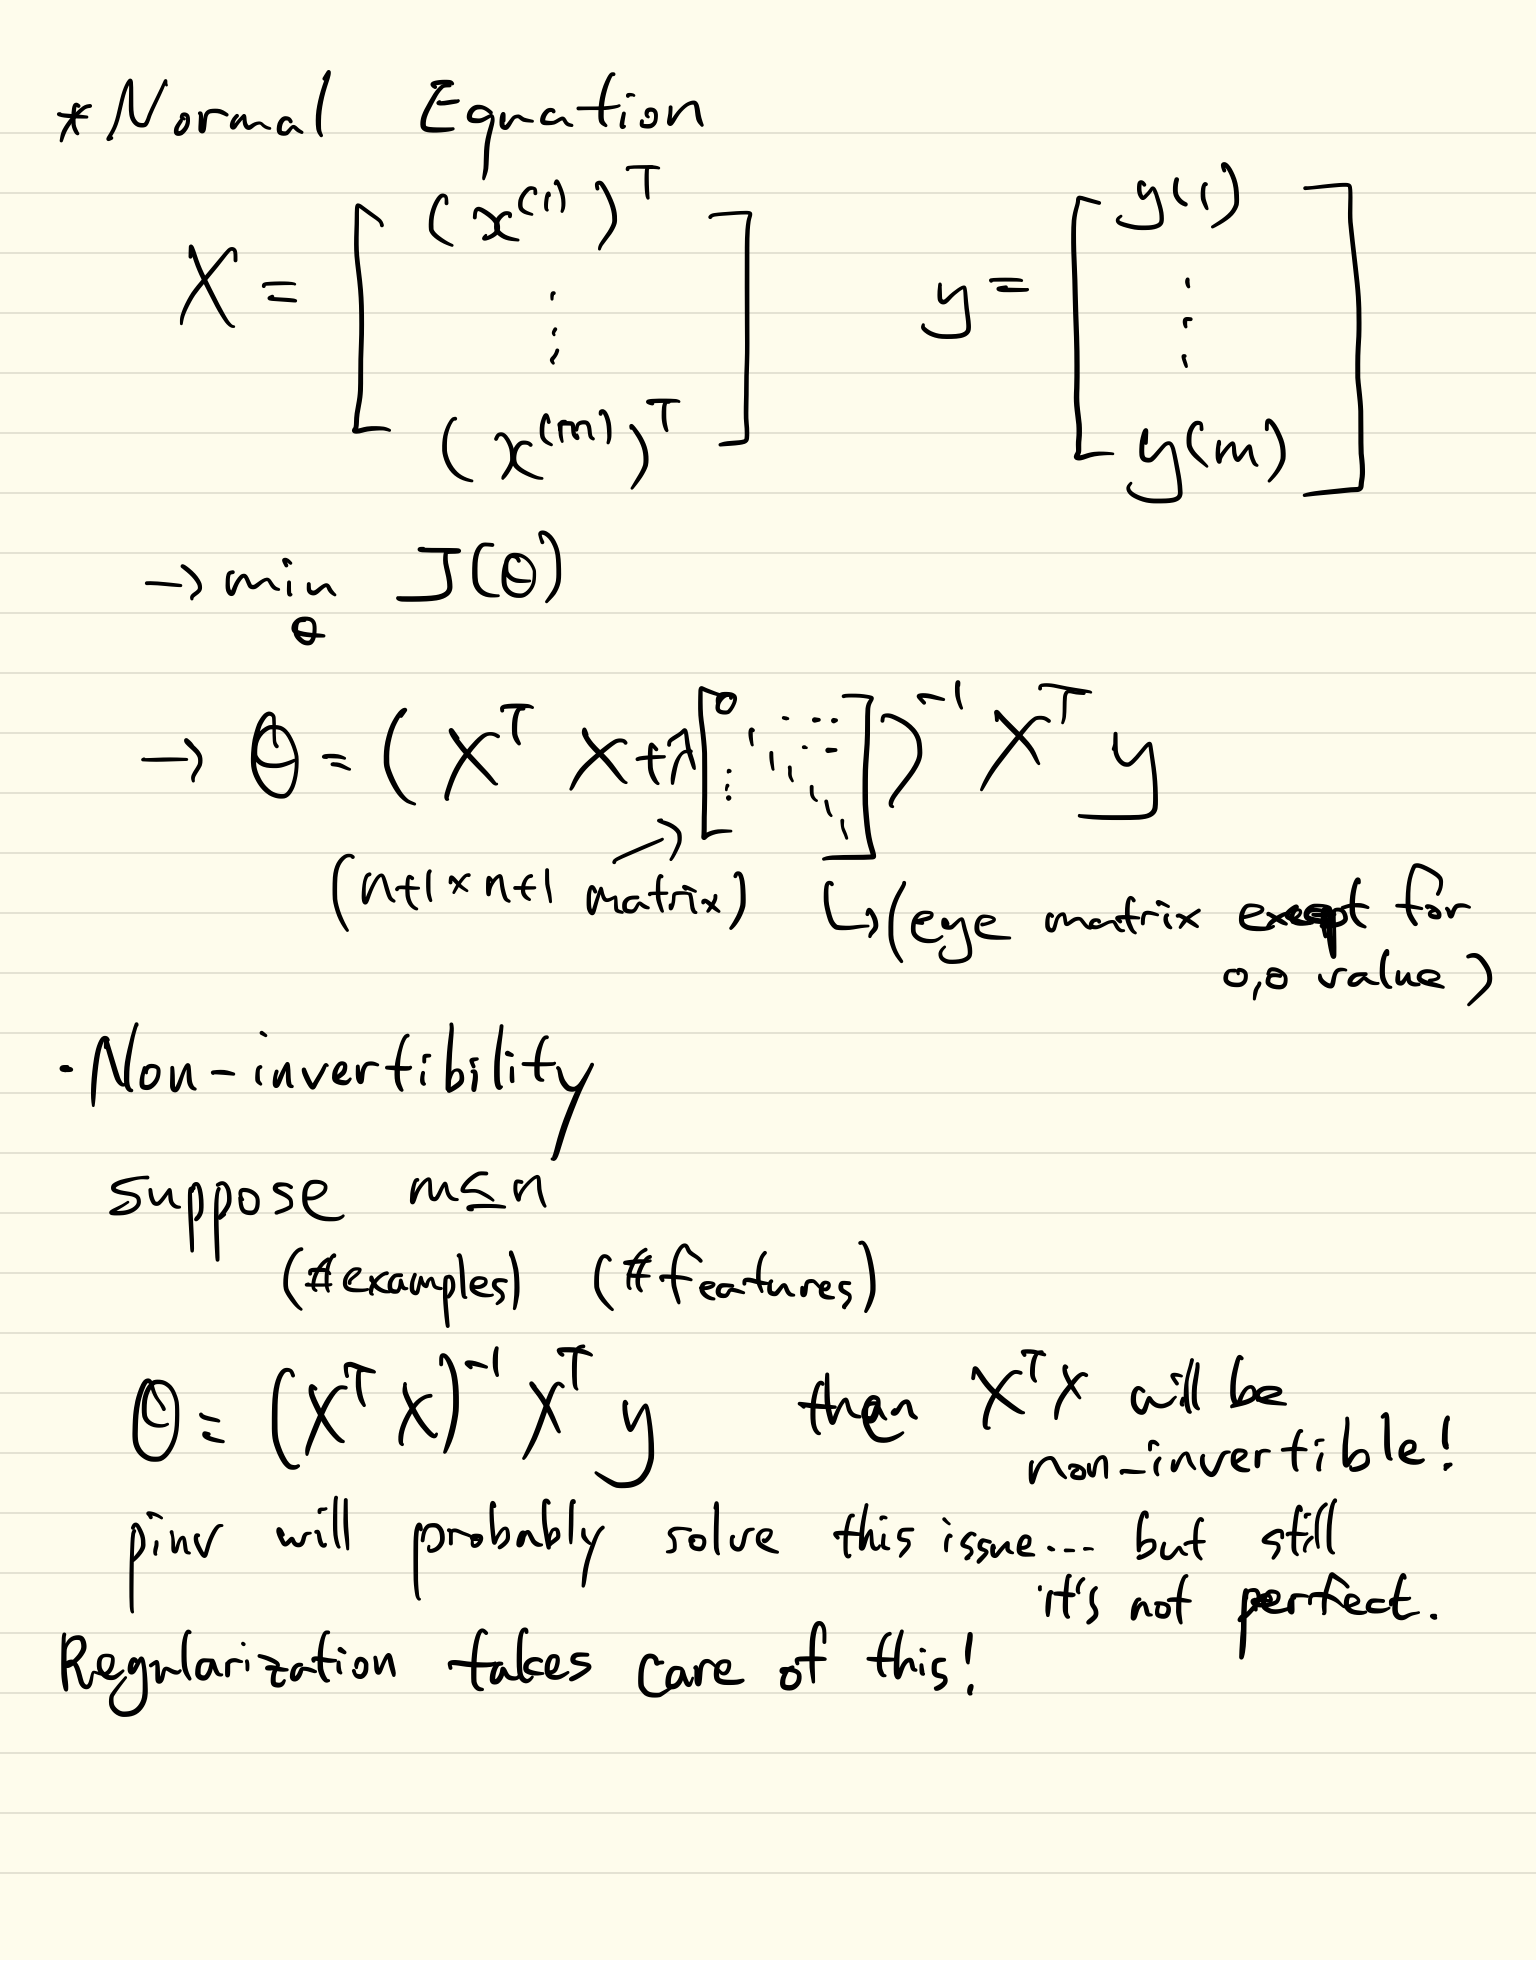 *Normal Equation
X = [ (x^(1))^T ⋮ (x^(m))^T ]   y = [ y(1) ⋮ y(m) ]
→ min_θ J(θ)
→ θ = (X^T X + λ [ 0 ... ⋮ 1 1 1 1 1 1 ])^-1 X^T y
(n+1 × n+1 matrix) ↳ (eye matrix except for
0,0 value)
· Non-invertibility
suppose m ≤ n
(#examples) (#features)
θ = (X^T X)^-1 X^T y   then X^T X will be
non-invertible!
pinv will probably solve this issue... but still
it's not perfect.
Regularization takes care of this!